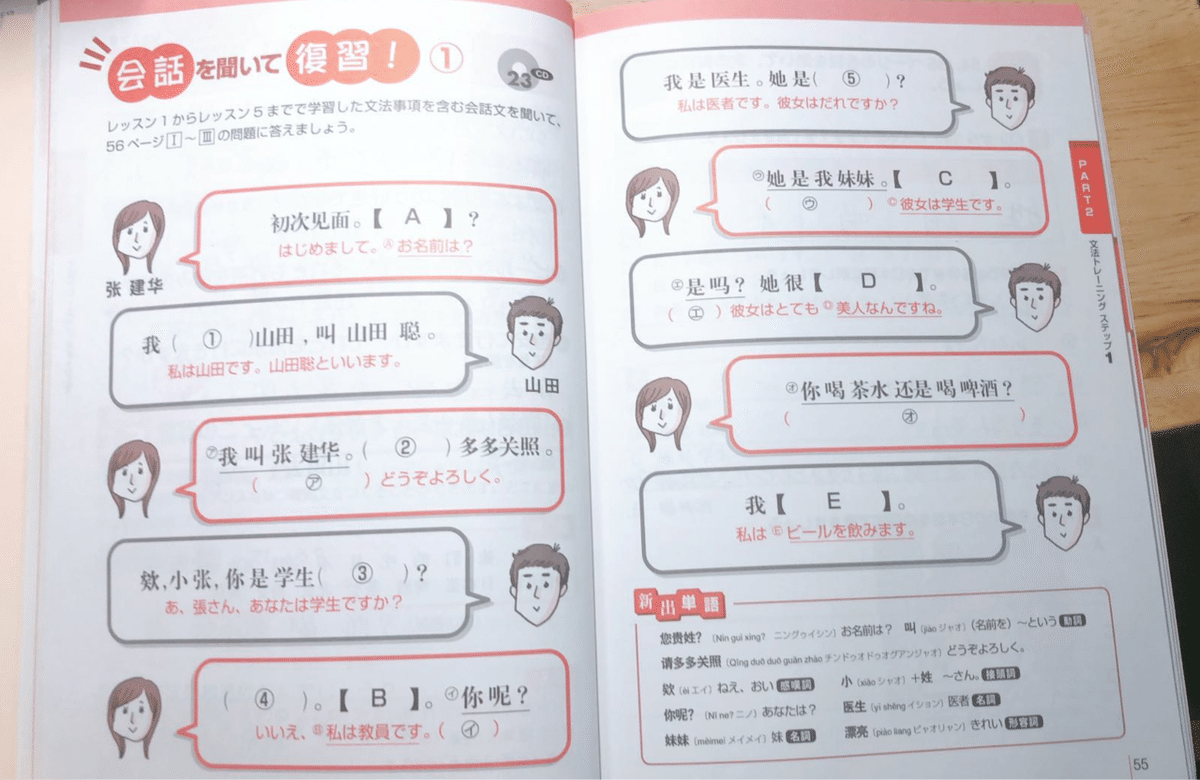 会話を聞いて復習！①
23 CD
レッスン1からレッスン5までで学習した文法事項を含む会話文を聞いて、
56ページⅠ～Ⅲの問題に答えましょう。
初次见面。【 A 】？
はじめまして。Ⓐお名前は？
张 建华
我（ ① ）山田，叫 山田 聪。
私は山田です。山田聡といいます。
山田
㋐我 叫 张 建华。（ ② ）多多关照。
（ ㋐ ）どうぞよろしく。
欸，小张，你是学生（ ③ ）？
あ、張さん、あなたは学生ですか？
（ ④ ）。【 B 】。㋑你呢？
いいえ、Ⓑ私は教員です。（ ㋑ ）
我是医生。她是（ ⑤ ）？
私は医者です。彼女はだれですか？
㋒她是我妹妹。【 C 】。
（ ㋒ ）Ⓒ彼女は学生です。
㋓是吗？她很【 D 】。
（ ㋓ ）彼女はとてもⒹ美人なんですね。
㋔你喝茶水还是喝啤酒？
（ ㋔ ）
我【 E 】。
私はⒺビールを飲みます。
新出単語
您贵姓？（Nín guì xìng? ニングゥイシン）お名前は？ 叫（jiào ジャオ）（名前を）～という 動詞
请多多关照（Qǐng duō duō guān zhào チンドゥオドゥオグアンジャオ）どうぞよろしく。
欸（éi エイ）ねえ、おい 感嘆詞 小（xiǎo シャオ）＋姓 ～さん。接頭詞
你呢？（Nǐ ne? ニノ）あなたは？ 医生（yī shēng イション）医者 名詞
妹妹（mèimei メイメイ）妹 名詞 漂亮（piào liang ピャオリャン）きれい 形容詞
PART2
文法トレーニング ステップ1
55